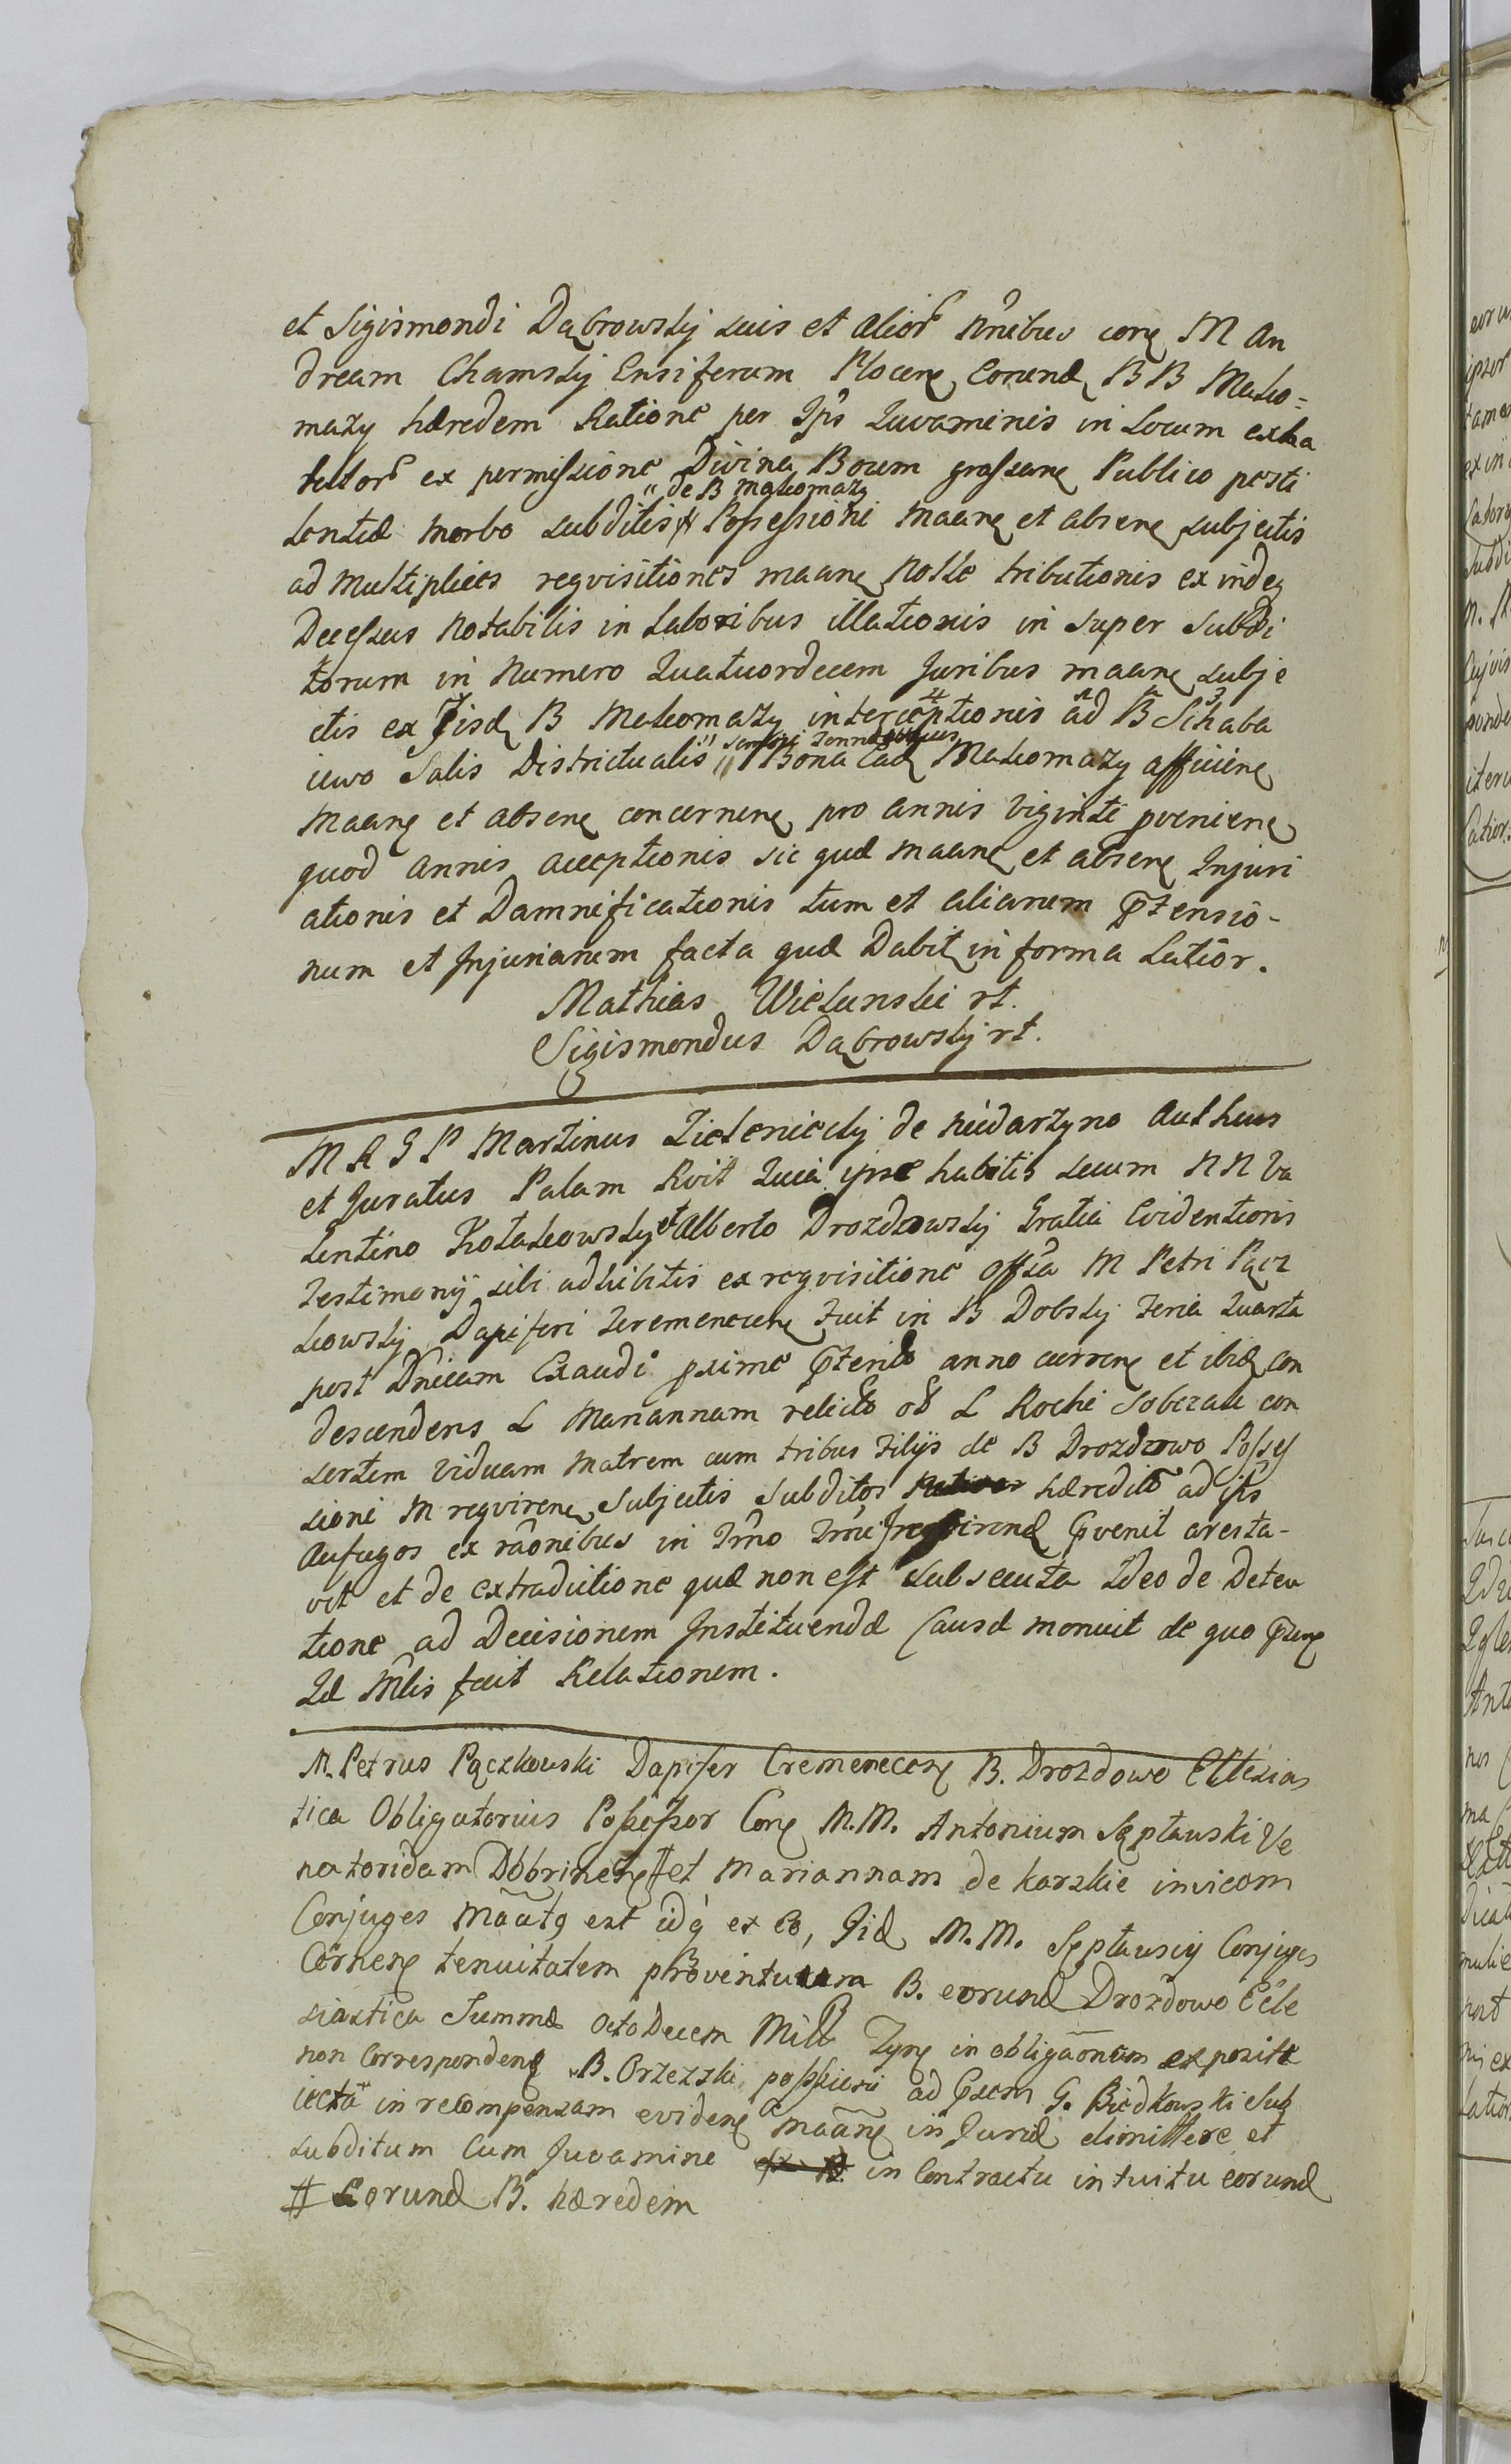 et Sigismondi Dąbrowskij suis et alior nnibus core M An
dream Chamskij Ensiferum Plocens Eorund BB Mako=
mazy hæredem Ratione per Ips Juvaminis in Locum exha
ustor ex permissione Divina Boum grassane Publico pesti
" de B Makomazy
lentiæ morbo subditis Possessioni maane et absene subjectis
ad multiplices requisitiones maane nolle tributionis ex inde
Decessus notabilis in Laboribus illationis in super Subdi
torum in numero Quatuordecem Juribus maane subje
ctis ex iisd B Makomazy interceptionis ad B
iewo Salis Districtualis " Bona ead Makomazy afficiene
Maane et absene concernene pro annis viginti proveniene
quod annis acceptionis sic quæ maane et absene Injuri
ationis et Damnificationis tum et aliarum ptensio-
num et Injuriarum facta quæ Dabit in forma Latior.
Mathias Wielunski rt.
Sigismondus Dąbrowskij rt.
M R G P Martinus Zielenieckij de Niedarzyno Authus
et Juratus Palam Rvit Quia ipse habitis secum NN Va
lentino Kotarkowskij et Alberto Drozdzowskij Gratia Evidentioris
Testimonij sibi adhibitis ex requisitione offsa M Petri Pącz
kowskij Dapiferi Cremenecens Fuit in B Dobskij Feria Quarta
post Dnicam Exaudi pxime pterito anno currene et ibid con
descendens L Mariannam relicto od L Rochi Sobczak con
sortem viduam matrem cum tribus Filijs de B Drozdzowo Posses
sioni M requirene Subjectis Subditos hæredito ad ips
Aufugos ex raonibus in Tmo pvenit aresta-
vit et de extraditione quæ non est subsecuta Ideo de Deten
tione ad Decisionem Instituendæ Causæ monuit de quo ptene
Id Mlis fecit Relationem.
M. Petrus Pączkowski Dapifer Cremenecens B. Drozdowo Ecclesias
tica Obligatorius Possessor Core M.M. Antonium Sęptawski Ve
natoridam Dobrinens # et Mariannam de Karskie invicem
Conjuges Maatg est idq ex eo, Iid M.M. Sęptawscij Conjuges
Cornene tenuitatem proventuum B. eorund Drozdowo Eccle
siastica Summæ octo Decem Mill Tyne in obligaonem exposite
non Correspondene B. Orzeszki posscieri ad psem G. Biedkowski Sub
iecta in recompensam evidene maane in Jurid dimittere et
subditum Cum Juvamine in Contractu intuitu eorund
# Eorund B. hæredem